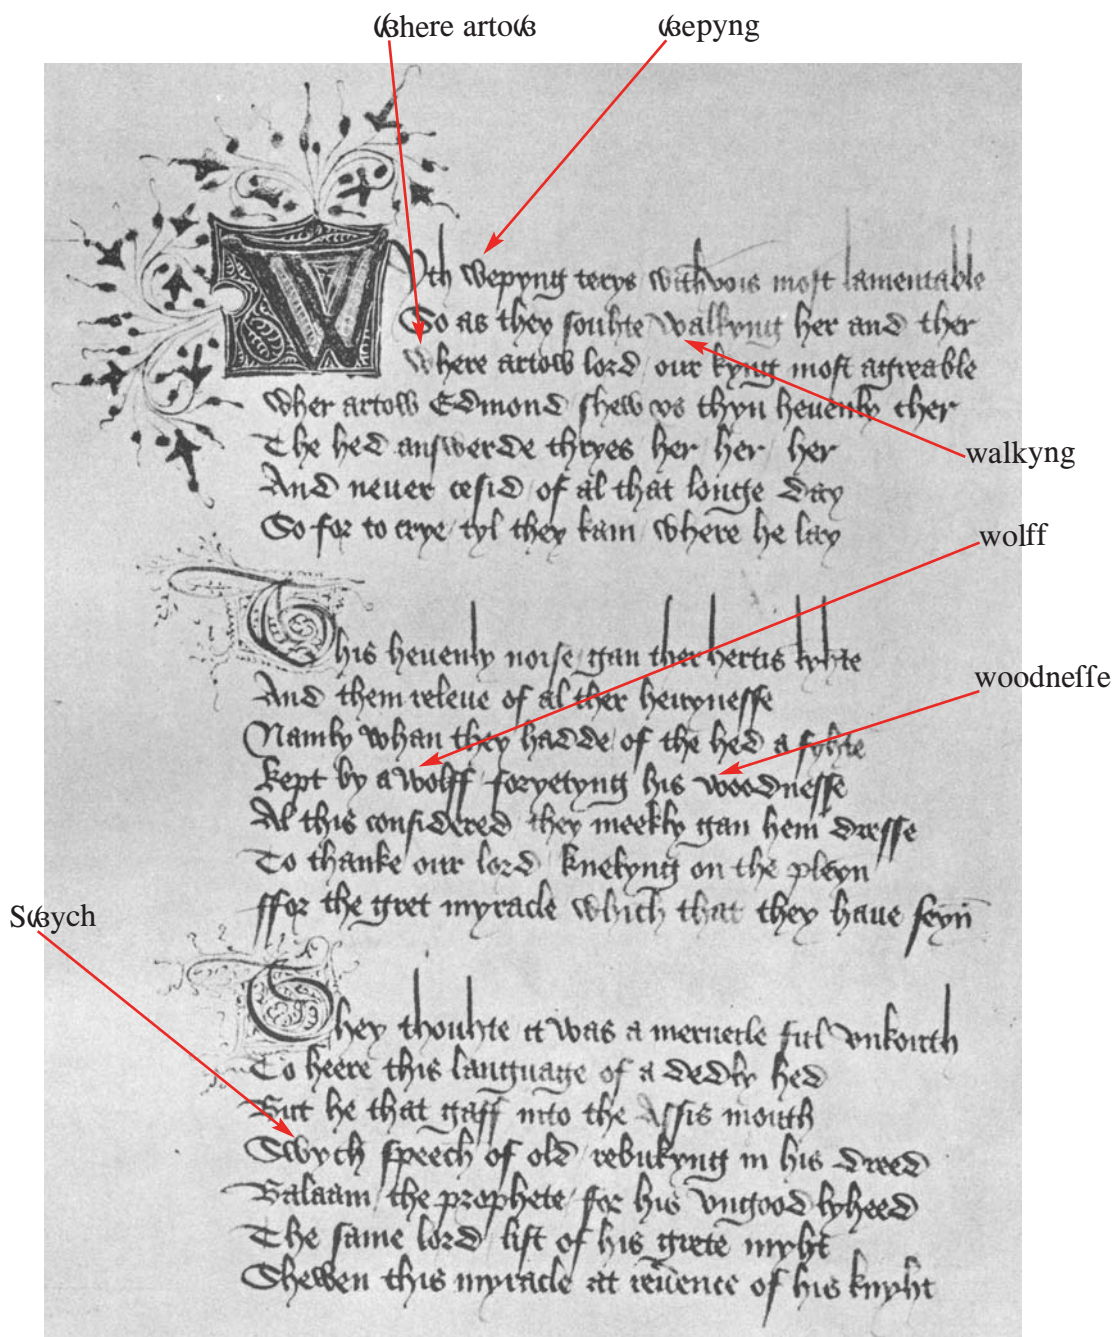 Ꟃhere artoꟃ ꟃepyng
Wyth wepyng terys with vois moſt lamentable
So as they ſouhte / walkyng her and ther
Where artow lord / our kyng moſt agreable
Wher artow Edmond / ſhew vs thyn hevenly cher
The hed answerde thryes her / her / her
And never ceſid / of al that longe day
So for to crye / tyl they kam / where he lay
walkyng
wolff
This heuenly noiſe / gan ther hertis lyhte
And them releve of al ther hevyneſſe
Namly whan they hadde / of the hed a ſyhte
kept by a wolff / foryetyng his woodneſſe
woodneſſe
Al this conſidered / they meekly gan hem dreſſe
To thanke our lord / knelyng on the pleyn
ffor the gret myracle which that they have ſeyn
Sꟃych
They thouhte it was a merveile ful vnkouth
To heere this language of a dedly hed
But he that gaff into the Aſſis mouth
Swych ſpeech of old / rebukyng in his dreed
Balaam / the prophete / for his vngoodlyheed
The ſame lord / liſt of his grete myht
Shewen this myracle at reuence of his knyht